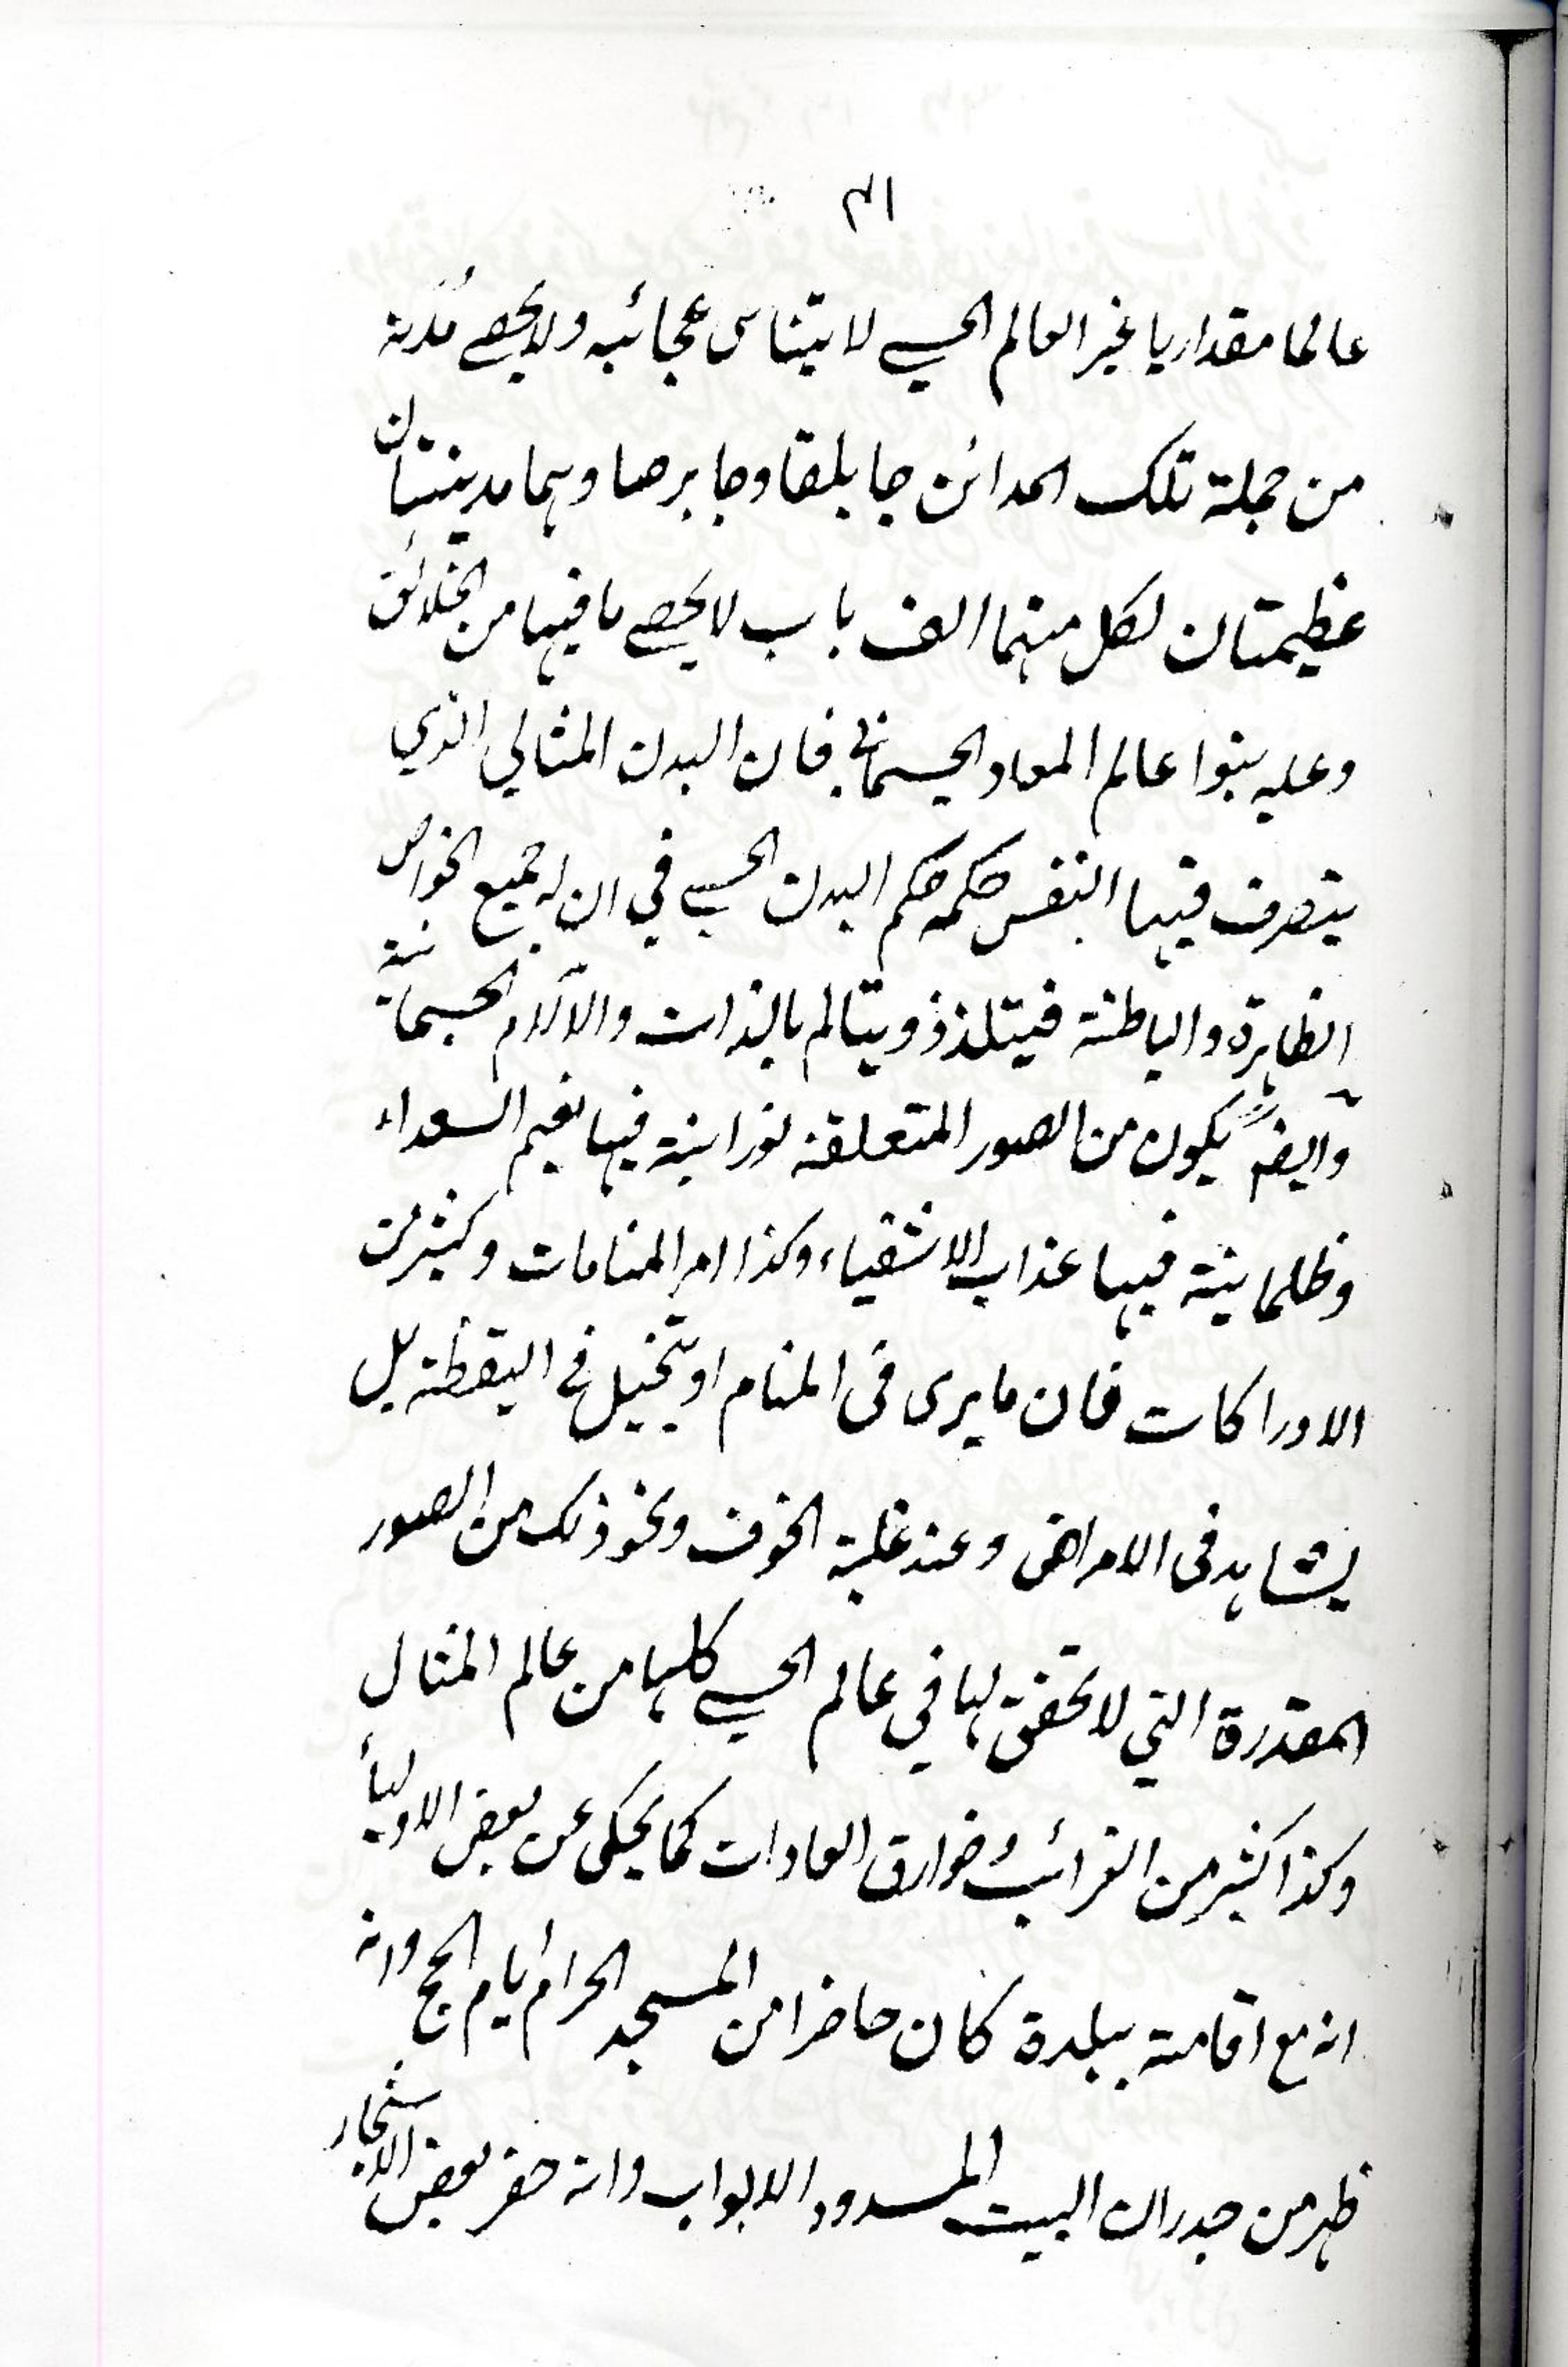 ٣١
عالما مقداريا غير العالم الحسي لا يتناهى عجائبه ولا يحصى مُدُنه
من جملة تلك المدائن جابلقا وجابرصا وهما مدينتان
عظيمتان لكل منهما الف باب لا يحصى ما فيها من الخلائق
وعليه بنوا عالم المعاد الجسماني فان البدن المثالي الذي
يتصرف فيها النفس حكمه حكم البدن الحسي في ان له جميع الخواص
الظاهرة والباطنة فيتلذذ ويتالم بالذات والآلام الجسمانية
وايضاً يكون من الصور المتعلقة نورانية فيها نعيم السعداء
وظلمانية فيها عذاب الاشقياء وكذا امر المنامات وكثير من
الادراكات فان ما يرى فى المنام او يتخيل فى اليقظة بل
يشاهد فى الامراض وعند غلبة الخوف ونحو ذلك من الصور
المقدرة التي لا تحقق لها في عالم الحسي كلها من عالم المثال
وكذا كثير من الغرائب وخوارق العادات كما يحكى عن بعض الاولياء
انه مع اقامته ببلدة كان حاضرا من المسجد الحرام ايام الحج وانه
ظهر من جدران البيت المسدود الابواب وانه حضر بعض الاشجار